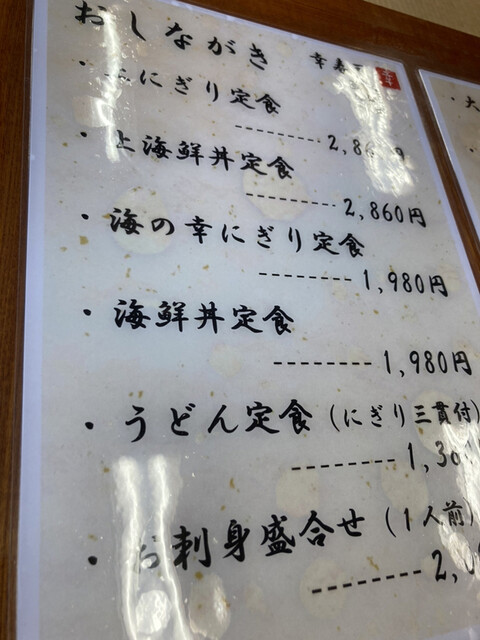 おしながき
幸寿
にぎり定食
・上海鮮丼定食
2,860円
・海の幸にぎり定食
1,980円
・海鮮丼定食
1,980円
・うどん定食（にぎり三貫付）
・お刺身盛合せ（1人前）